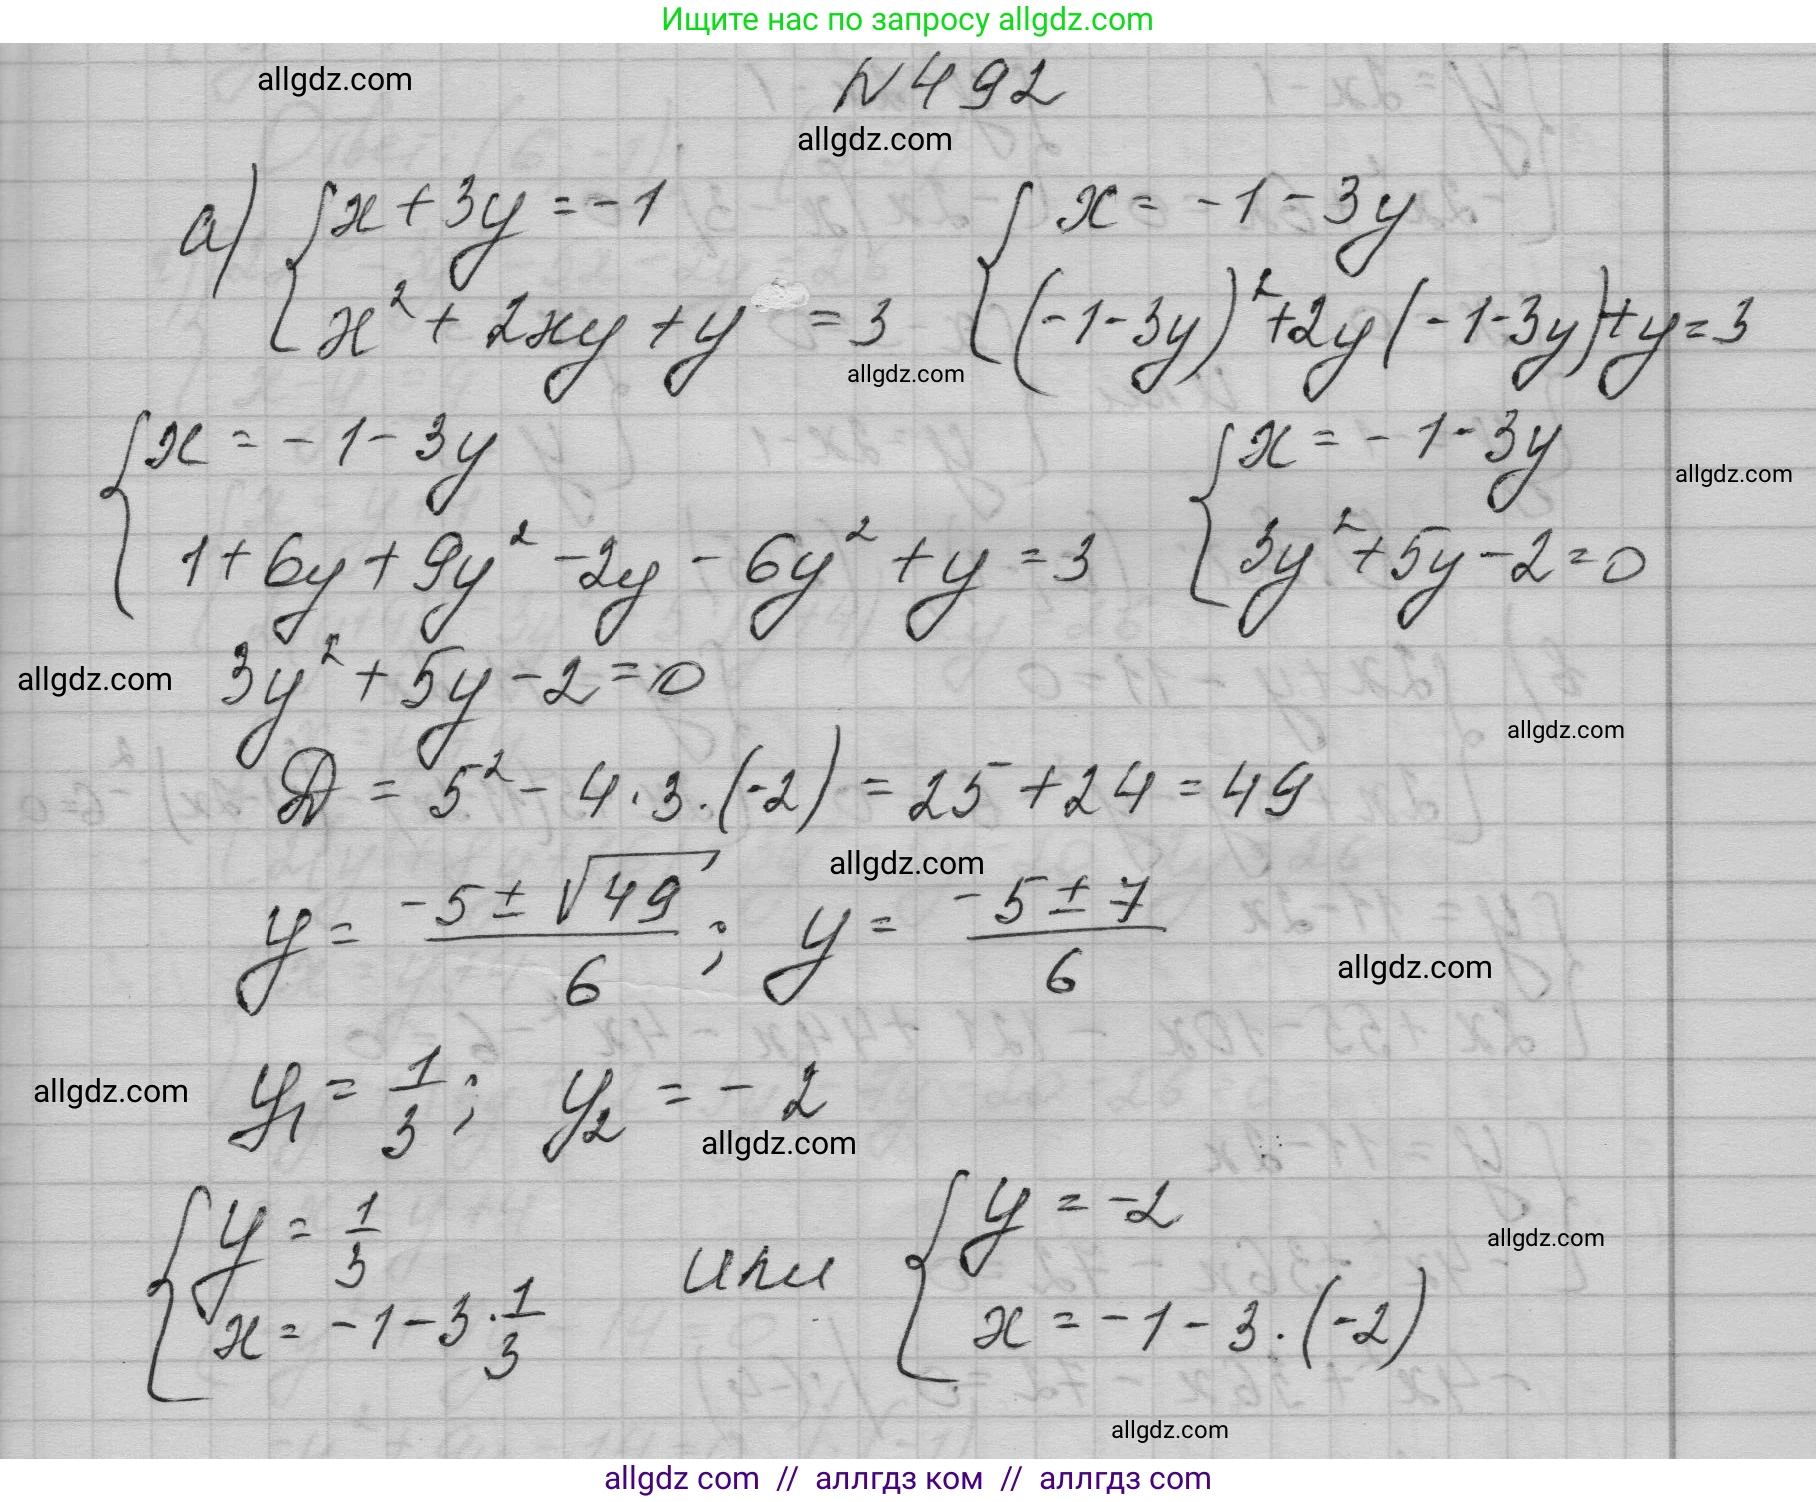 Ищите нас по запросу allgdz.com
allgdz.com
N 492
allgdz.com
а) { x + 3y = -1 { x = -1 - 3y
x² + 2xy + y = 3 (-1-3y)² + 2y(-1-3y) + y = 3
allgdz.com
{ x = -1 - 3y { x = -1 - 3y
allgdz.com
1 + 6y + 9y² - 2y - 6y² + y = 3 3y² + 5y - 2 = 0
allgdz.com
3y² + 5y - 2 = 0
allgdz.com
D = 5² - 4 · 3 · (-2) = 25 + 24 = 49
allgdz.com
y = (-5 ± √49)/6 ; y = (-5 ± 7)/6
allgdz.com
allgdz.com
y₁ = 1/3 ; y₂ = -2
allgdz.com
{ y = 1/3 или { y = -2
allgdz.com
x = -1 - 3 · 1/3 x = -1 - 3 · (-2)
allgdz.com
allgdz com // аллгдз ком // аллгдз com